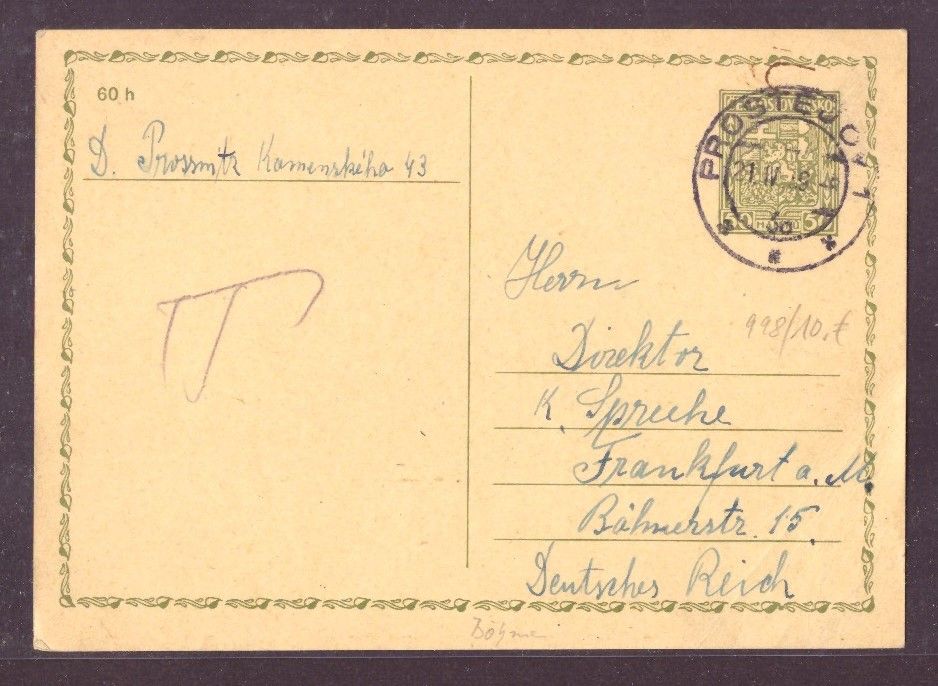 60 h
D. Prossnitz Komenského 43
ČESKOSLOVENSKO
50 50
PROSTĚJOV 1
21.IV
T
Herrn
Direktor
K. Spreche
Frankfurt a. M.
Böhmerstr. 15.
Deutsches Reich
998/10.€
Böhme